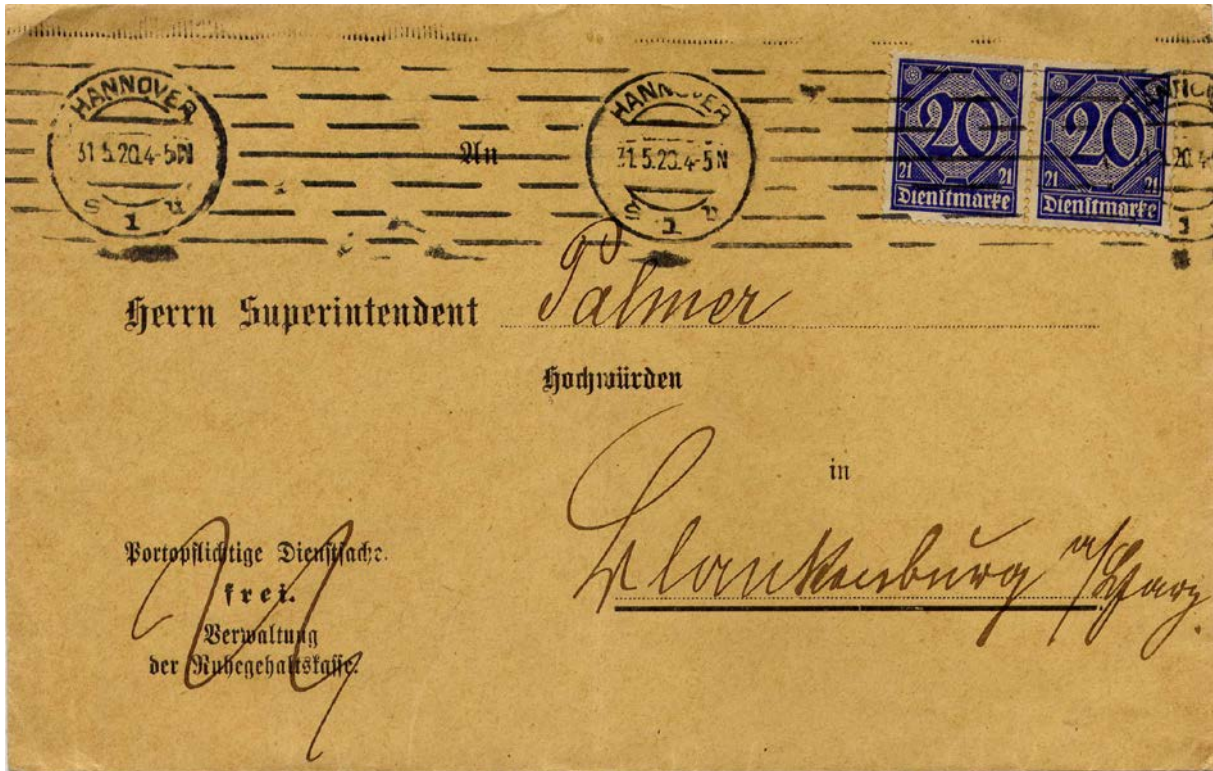 HANNOVER
31.5.20.4-5N
S 1 u
HANNOVER
31.5.20.4-5N
S 1 u
20
21 21
Dienstmarke
20
21 21
Dienstmarke
An
Herrn Superintendent Palmer
Hochwürden
in
Blankenburg a/Harz.
Portopflichtige Dienstsache.
frei.
Verwaltung
der Ruhegehaltskasse.